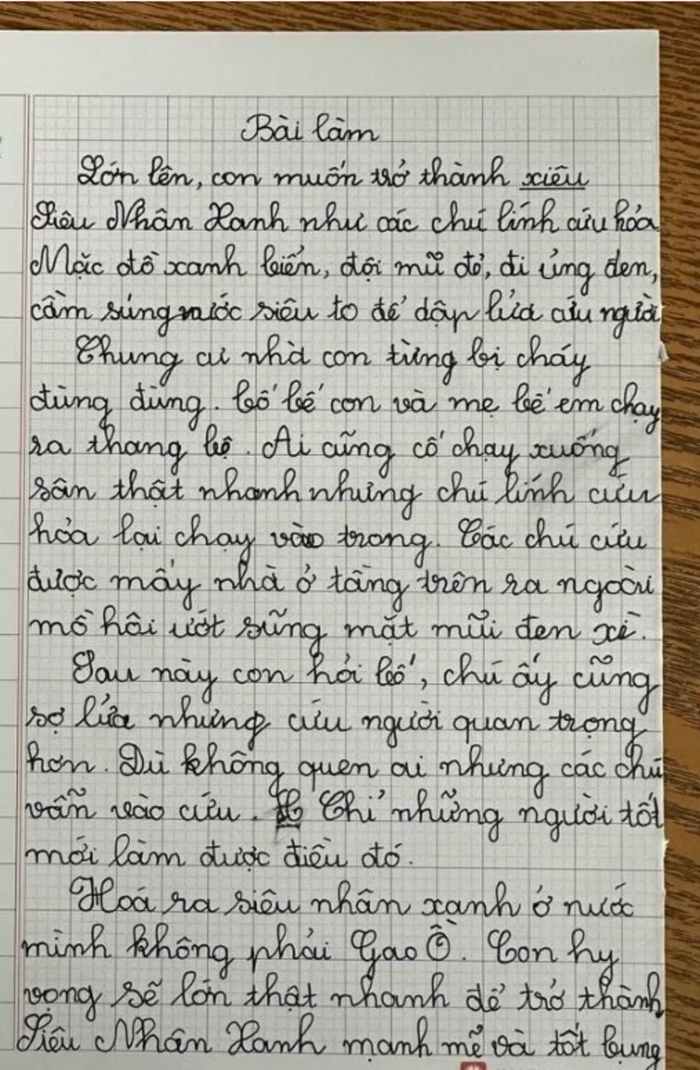 Bài làm
Lớn lên, con muốn trở thành xiêu
Siêu Nhân Xanh như các chú lính cứu hỏa
Mặc đồ xanh biển, đội mũ đỏ, đi ủng đen,
cầm súng nước siêu to để dập lửa cứu người
Chung cư nhà con từng bị cháy
đùng đùng. bố bế con và mẹ bế em chạy
ra thang bộ. Ai cũng cố chạy xuống
sân thật nhanh nhưng chú lính cứu
hỏa lại chạy vào trong. Các chú cứu
được mấy nhà ở tầng trên ra ngoài
mồ hôi ướt sũng mặt mũi đen xì.
Sau này con hỏi bố, chú ấy cũng
sợ lửa nhưng cứu người quan trọng
hơn. Dù không quen ai nhưng các chú
vẫn vào cứu. Chỉ những người tốt
mới làm được điều đó.
Hoá ra siêu nhân xanh ở nước
mình không phải Gao Ồ. Con hy
vong sẽ lớn thật nhanh để trở thành
Siêu Nhân Xanh mạnh mẽ và tốt bụng